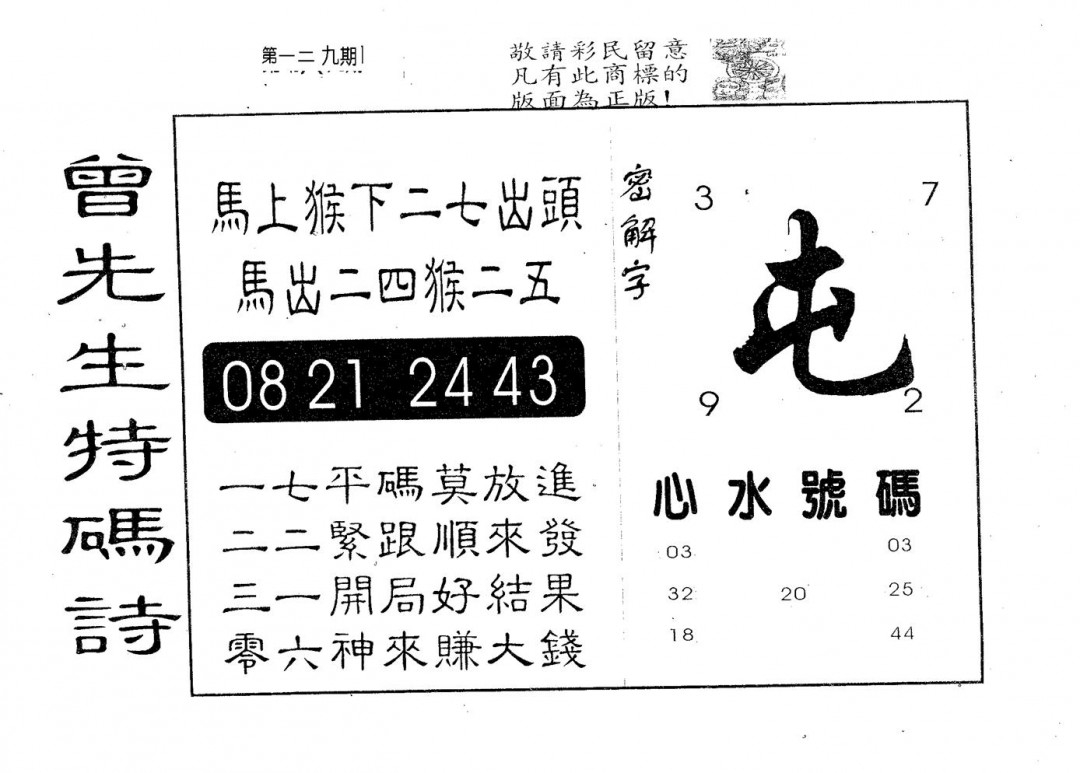 第一二九期
敬請彩民留意
凡有此商標的
版面為正版!
曾先生特碼詩
馬上猴下二七出頭
馬出二四猴二五
08 21 24 43
一七平碼莫放進
二二緊跟順來發
三一開局好結果
零六神來賺大錢
密解字
3 7
屯
9 2
心水號碼
03 03
32 20 25
18 44